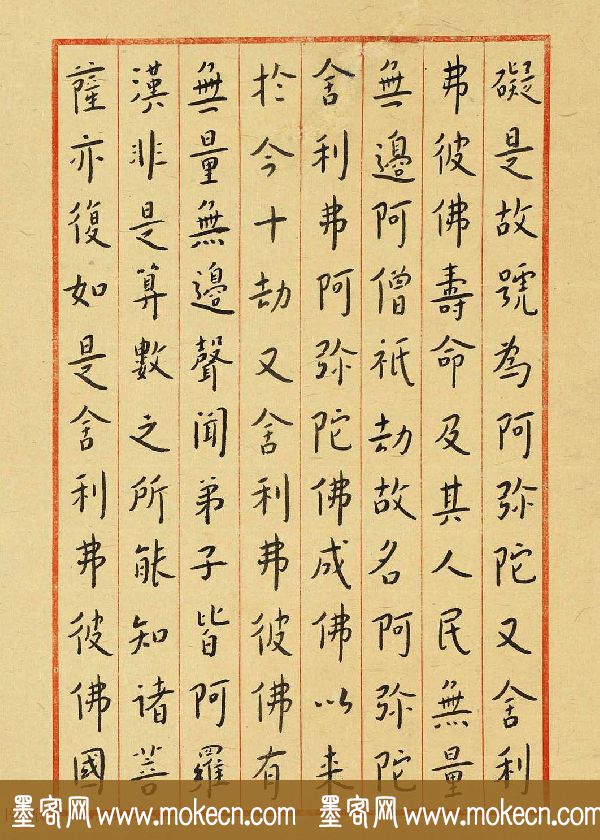 礙是故號為阿弥陀又舍利
弗彼佛壽命及其人民無量
無邊阿僧祇劫故名阿弥陀
舍利弗阿弥陀佛成佛以来
於今十劫又舍利弗彼佛有
無量無邊聲闻弟子皆阿羅
漢非是算數之所能知诸菩
薩亦復如是舍利弗彼佛國
墨客网 www.mokecn.com 墨客网 www.mokecn.com